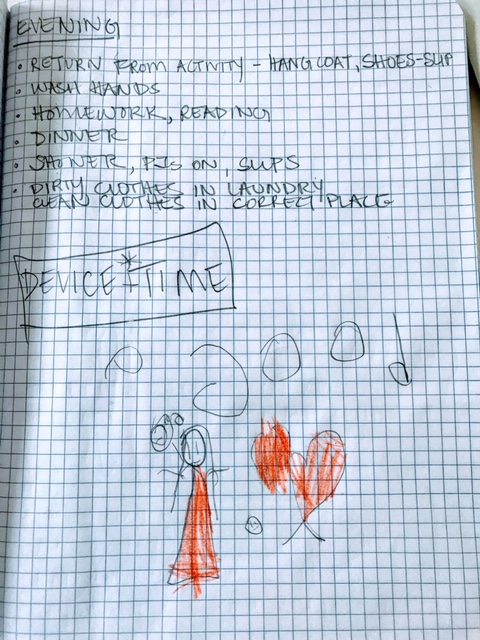 EVENING
• RETURN FROM ACTIVITY - HANG COAT, SHOES-SLIP
• WASH HANDS
• HOMEWORK, READING
• DINNER
• SHOWER, PJs ON, SLIPS
• DIRTY CLOTHES IN LAUNDRY
CLEAN CLOTHES IN CORRECT PLACE
DEVICE * TIME